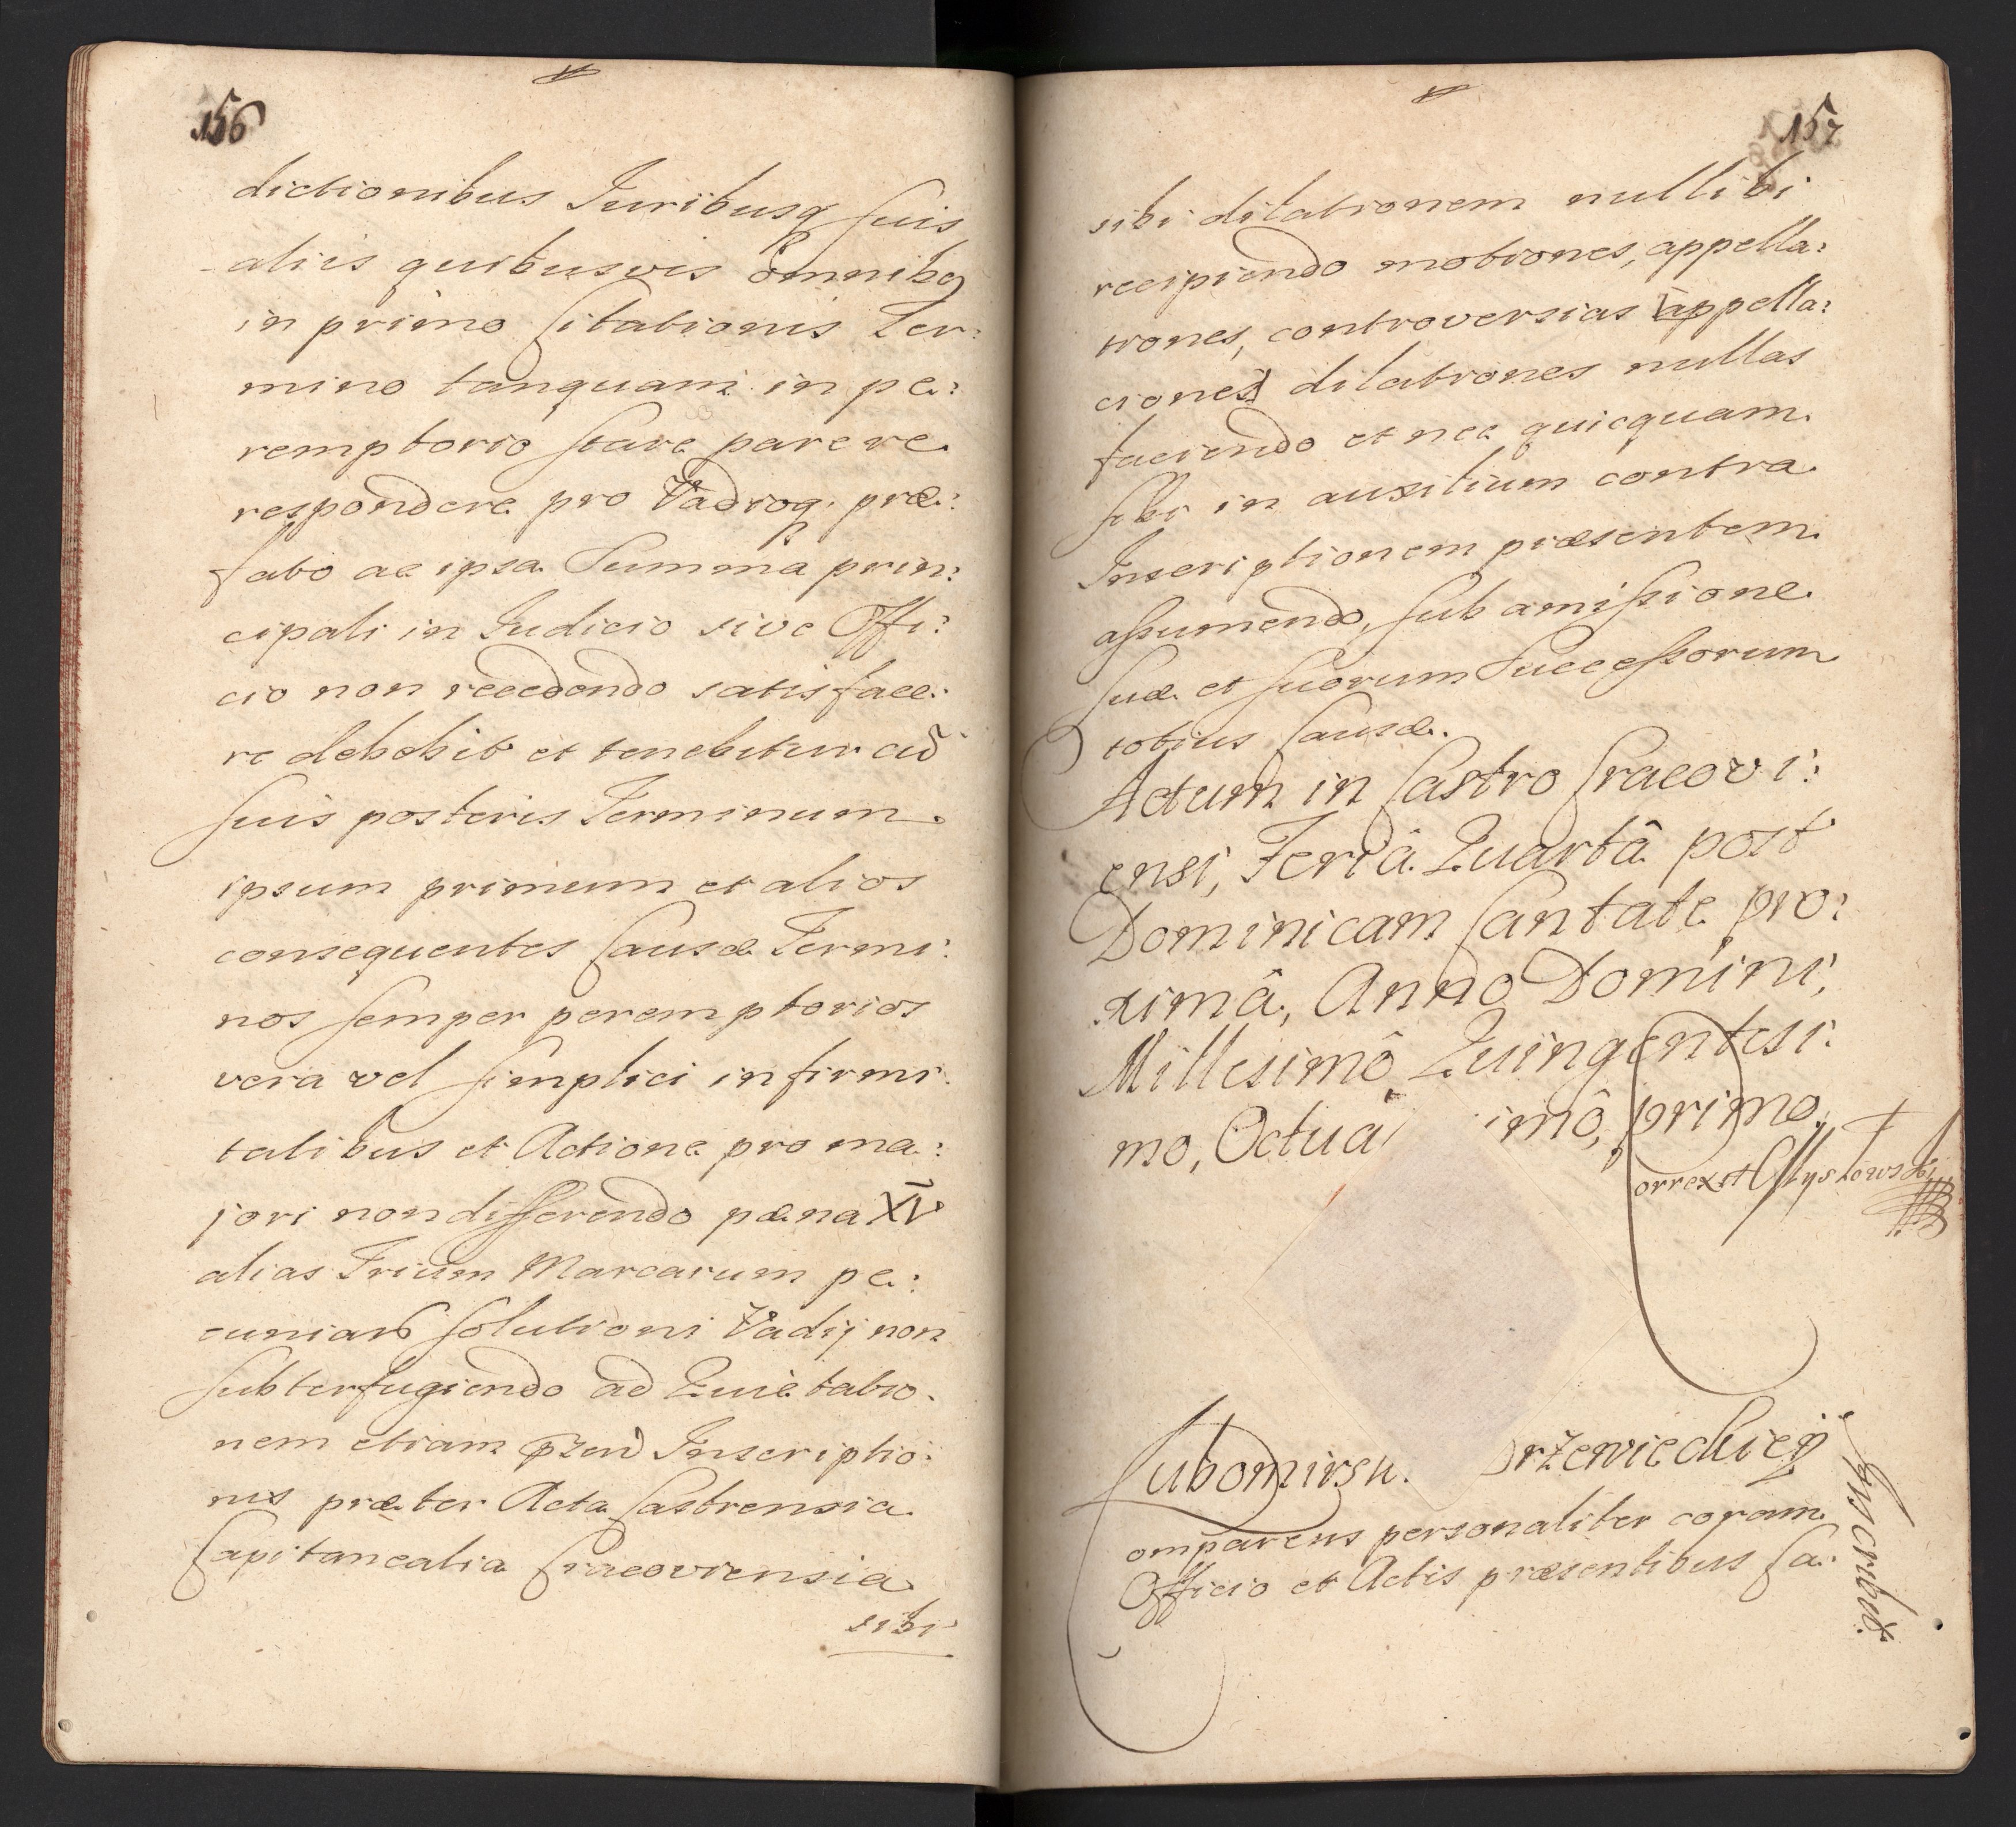 156
dictionibus Juribusq suis
aliis quibusvis omnibq
in primo Citationis Ter:
mino tanquam in pe:
remptorio stare parere
respondere pro Vadioq. præ:
fato ac ipsa Summa prin:
cipali in Judicio sive Offi:
cio non recedendo satisface:
re debebit et tenebitur cũ
suis posteris Terminum
ipsum primum et alios
consequentes Causæ Termi:
nos semper peremptorios
vera vel simplici infirmi:
tatibus et Actione pro ma:
jori non differendo pæna XV
alias Trium Marcarum pe:
cuniar solutioni Vadij non
subterfugiendo ad Quietatio:
nem etiam Inscriptio:
nis præter Acta Castrensia
Capitanealia Cracoviensia
sibi
157
sibi dilationem nullibi
recipiendo motiones, appella:
tiones, controversias appella:
ciones dilationes nullas
faciendo et nec quicquam
sibi in auxilium contra
Inscriptionem præsentem
assumendo, sub amissione
suæ et suorum Successorum
totius Causæ.
Actum in Castro Cracovi:
ensi, Feriâ Quartâ post
Dominicam Cantate pro:
ximâ, Anno Domini,
Millesimô Quingentesi:
mo, Octua imô, primo.
Correxit Myszkowski
Lubomirsk. Drzewieckiej
Inscribit.
Comparens personaliter coram
Officio et Actis præsentibus Ca: